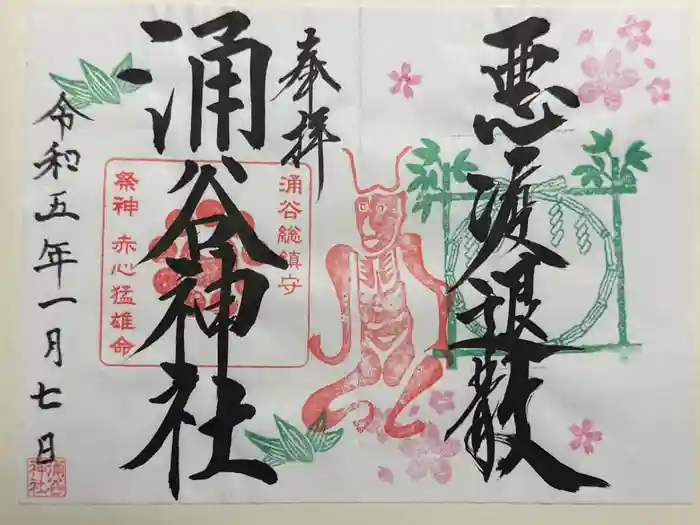 悪疫退散
奉拝
涌谷神社
涌谷総鎮守
祭神 赤心猛雄命
令和五年一月七日
涌谷
神社